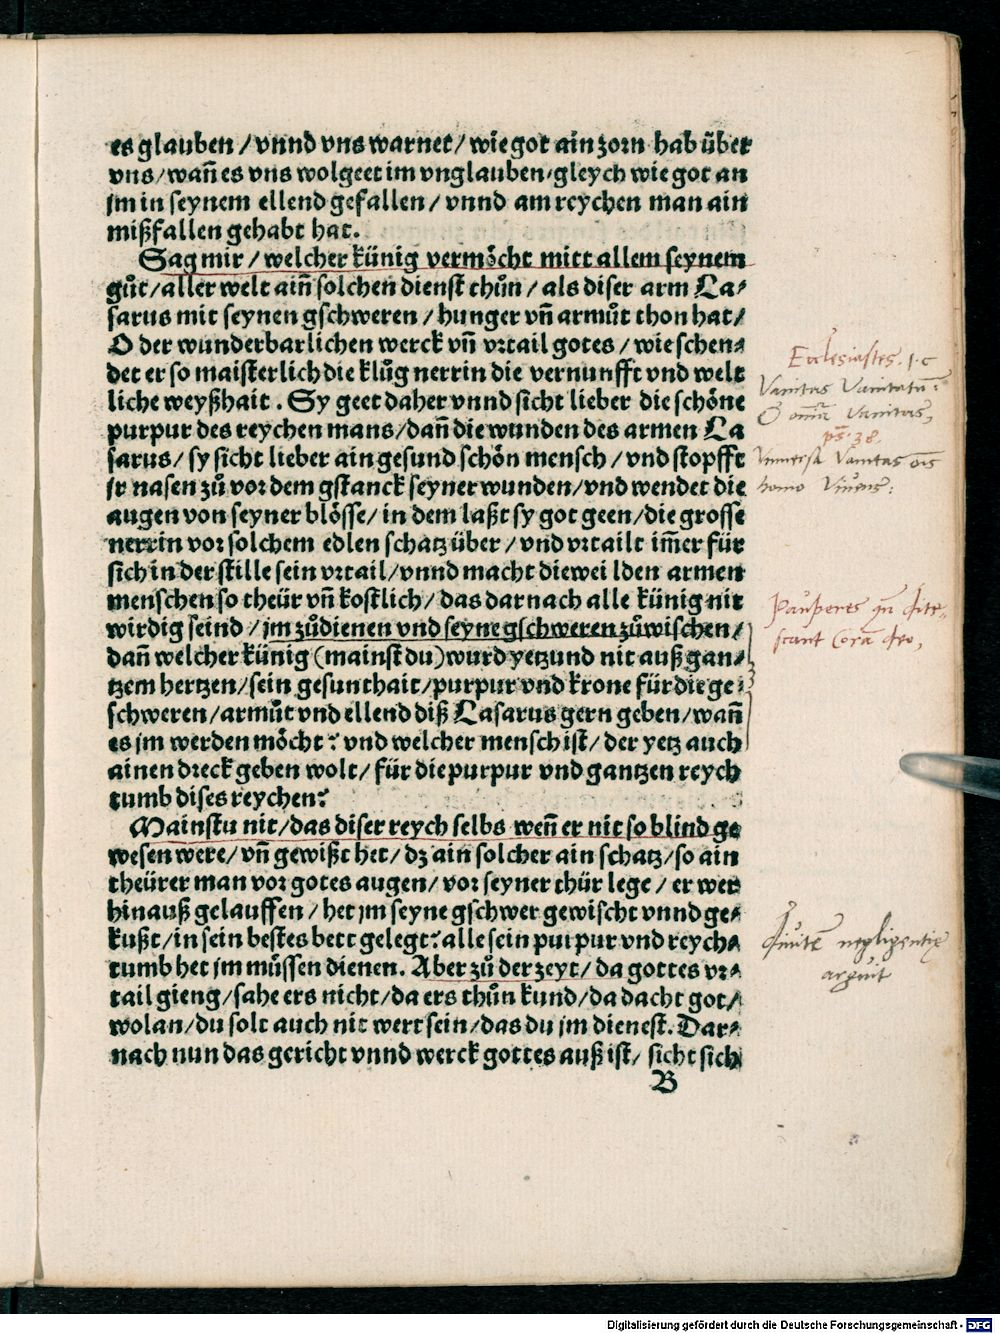 es glauben / vnnd vns warnet / wie got ain zorn hab über
vns / wañ es vns wolgeet im vnglauben / gleych wie got an
jm in seynem ellend gefallen / vnnd am reychen man ain
mißfallen gehabt hat.
Sag mir / welcher künig vermöcht mitt allem seynem
gůt / aller welt aiñ solchen dienst thůn / als diser arm La⸗
sarus mit seynen gschweren / hunger vñ armůt thon hat /
O der wunderbarlichen werck vñ vrtail gotes / wie schen⸗
det er so maisterlich die klůg nerrin die vernunfft vnd welt
liche weyßhait. Sy geet daher vnnd sicht lieber die schöne
purpur des reychen mans / dañ die wunden des armen La
sarus / sy sicht lieber ain gesund schön mensch / vnd stopfft
jr nasen zů vor dem gstanck seyner wunden / vnd wendet die
augen von seyner blösse / in dem laßt sy got geen / die grosse
nerrin vor solchem edlen schatz über / vnd vrtailt im̄er für
sich in der stille sein vrtail / vnnd macht diewei lden armen
menschen so theür vñ kostlich / das darnach alle künig nit
wirdig seind / jm zůdienen vnd seyne gschweren zůwischen /
dañ welcher künig (mainst du) wurd yetzund nit auß gan⸗
tzem hertzen / sein gesunthait / purpur vnd krone für die ge⸗
schweren / armůt vnd ellend diß Lasarus gern geben / wañ
es jm werden möcht? vnd welcher mensch ist / der yetz auch
ainen dreck geben wolt / für die purpur vnd gantzen reych
tumb dises reychen?
Mainstu nit / das diser reych selbs weñ er nit so blind ge
wesen were / vñ gewißt het / dz ain solcher ain schatz / so ain
theürer man vor gotes augen / vor seyner thür lege / er wer
hinauß gelauffen / het jm seyne gschwer gewischt vnnd ge⸗
kußt / in sein bestes bett gelegt? alle sein purpur vnd reych⸗
tumb het jm müssen dienen. Aber zů der zeyt / da gottes vr⸗
tail gieng / sahe ers nicht / da ers thůn kund / da dacht got /
wolan / du solt auch nit wert sein / das du jm dienest. Dar⸗
nach nun das gericht vnnd werck gottes auß ist / sicht sich
B
Ecclesiastes. 1. c
Vanitas Vanitatū:
& omnia Vanitas,
ps. 38.
Vniuersa Vanitas ois
homo Viuens:
Pauperes
coram deo,
diuitē negligentię
arguit
Digitalisierung gefördert durch die Deutsche Forschungsgemeinschaft - DFG